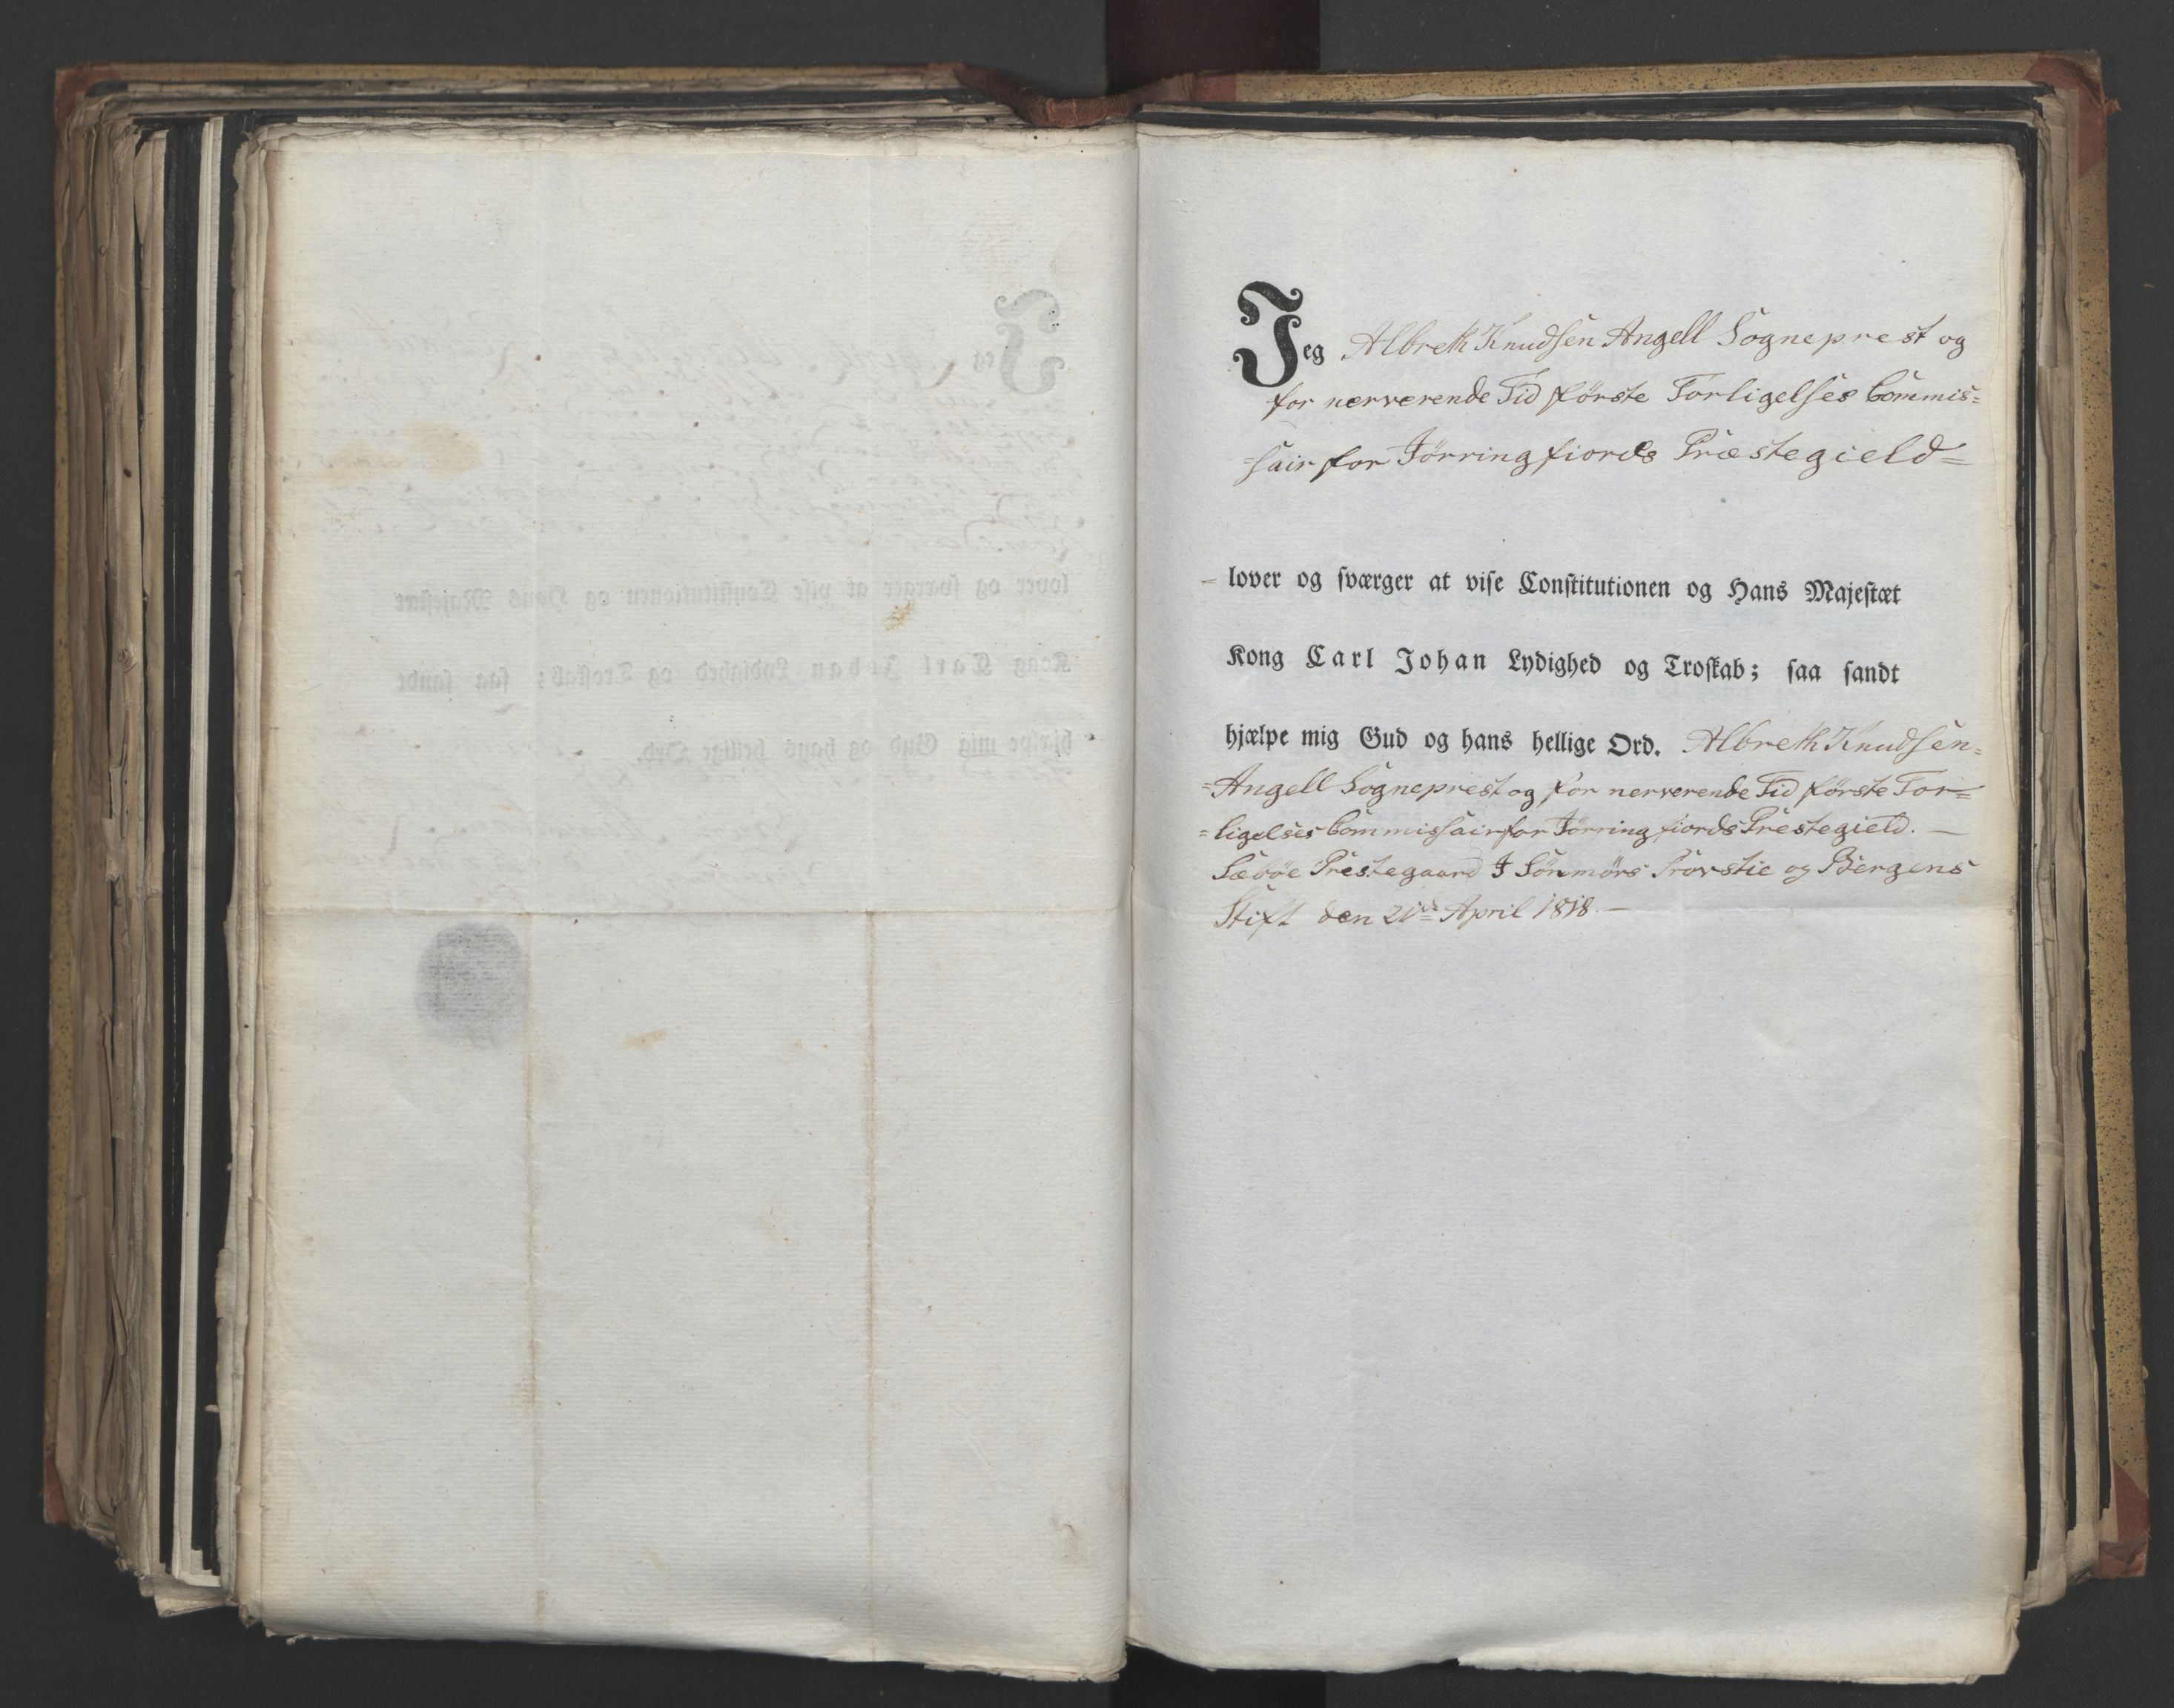 Jeg Albreth Knudsen Angell Sogneprest og
for nerverende Tid første Forligelses Commis=
=sair for Jørringfiords Præstegield=
lover og sværger at vise Constitutionen og Hans Majestæt
Kong Carl Johan Lydighed og Troskab; saa sandt
hjælpe mig Gud og hans hellige Ord. Albreth Knudsen=
=Angell Sogneprest og for nerverende Tid første For=
=ligelses Commissair for Jørringfiords Prestegield. —
Sæbøe Prestegaard I Sønmørs Provstie og Bergens
Stift den 21de April 1818. —